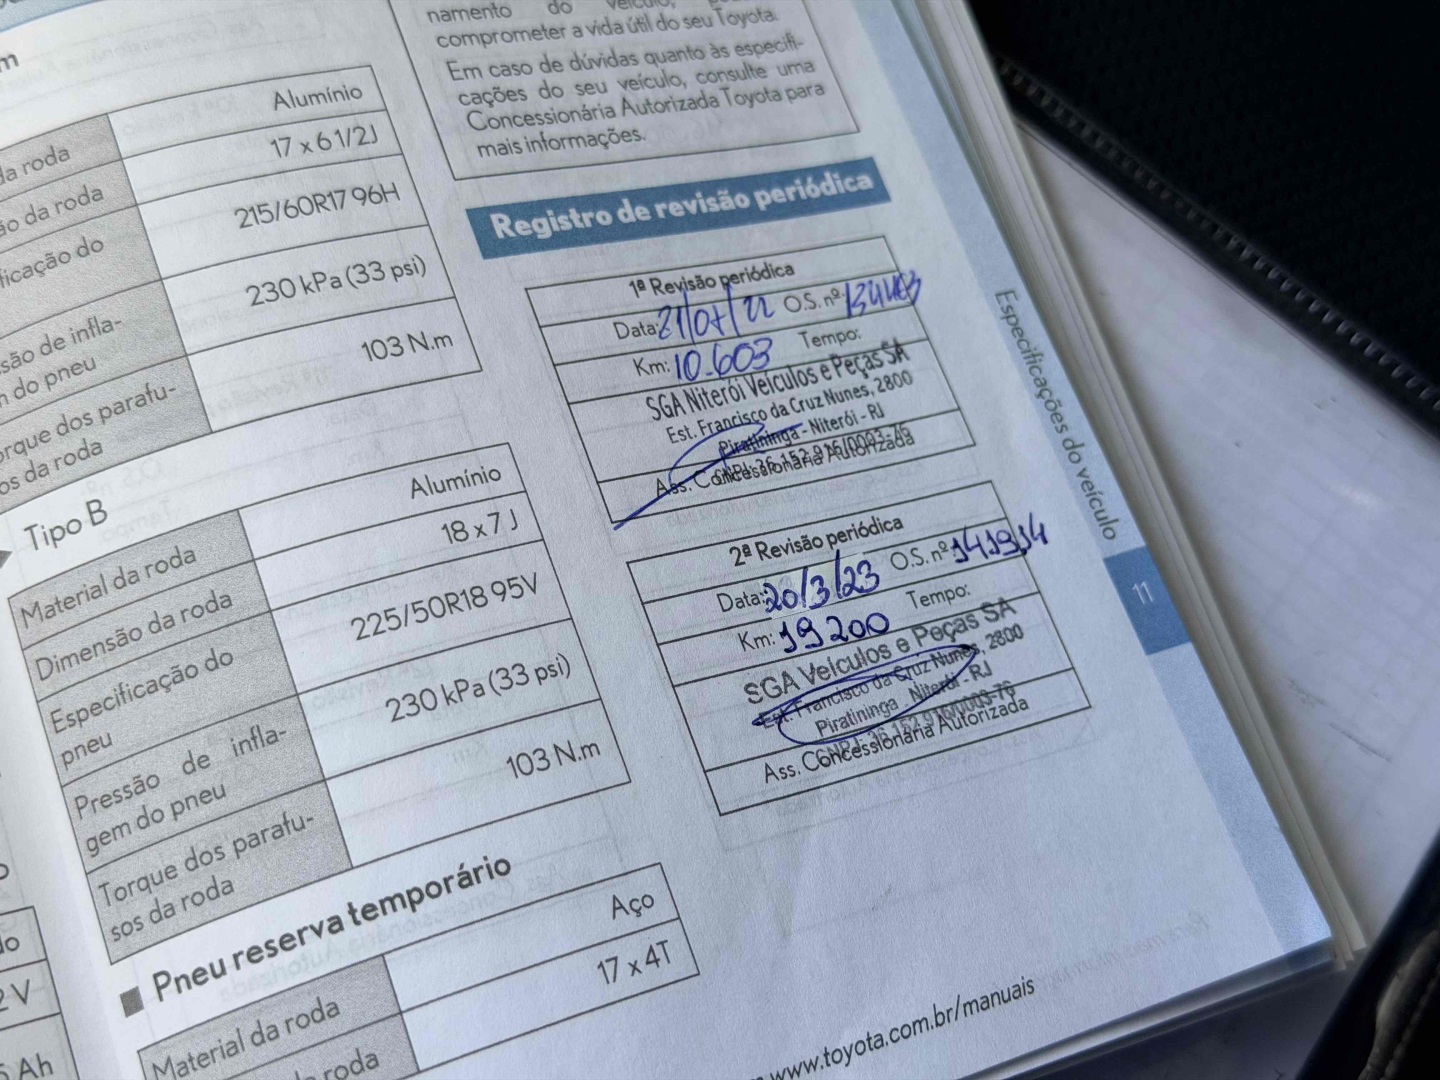 namento do veículo,
comprometer a vida útil do seu Toyota.
Em caso de dúvidas quanto às especifi-
cações do seu veículo, consulte uma
Concessionária Autorizada Toyota para
mais informações.
da roda
Alumínio
ão da roda
17 x 6 1/2J
ficação do
215/60R17 96H
são de infla-
m do pneu
230 kPa (33 psi)
orque dos parafu-
os da roda
103 N.m
Tipo B
Material da roda
Alumínio
Dimensão da roda
18 x 7 J
Especificação do
pneu
225/50R18 95V
Pressão de infla-
gem do pneu
230 kPa (33 psi)
Torque dos parafu-
sos da roda
103 N.m
Pneu reserva temporário
Material da roda
Aço
roda
17 x 4T
Registro de revisão periódica
1ª Revisão periódica
Data: 21/07/22 O.S. nº
Km: 10.603 Tempo:
SGA Niterói Veículos e Peças SA
Est. Francisco da Cruz Nunes, 2800
Piratininga - Niterói - RJ
CNPJ: 36.152.916/0003-76
Ass. Concessionária Autorizada
2ª Revisão periódica
Data: 20/3/23 O.S. nº 141914
Km: 19200 Tempo:
SGA Veículos e Peças SA
Est. Francisco da Cruz Nunes, 2800
Piratininga - Niterói - RJ
CNPJ: 36.152.916/0003-76
Ass. Concessionária Autorizada
Especificações do veículo
11
www.toyota.com.br/manuais